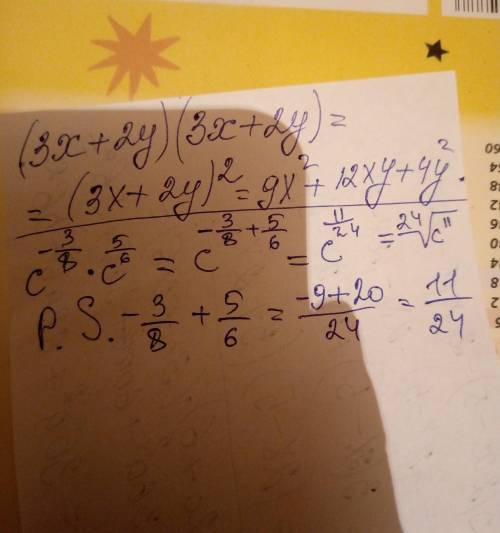 (3x+2y)(3x+2y)=
= (3x+2y)² = 9x² + 12xy + 4y².
c^(-3/8) · c^(5/6) = c^(-3/8+5/6) = c^(11/24) = ²⁴√c¹¹
P. S. -3/8 + 5/6 = (-9+20)/24 = 11/24